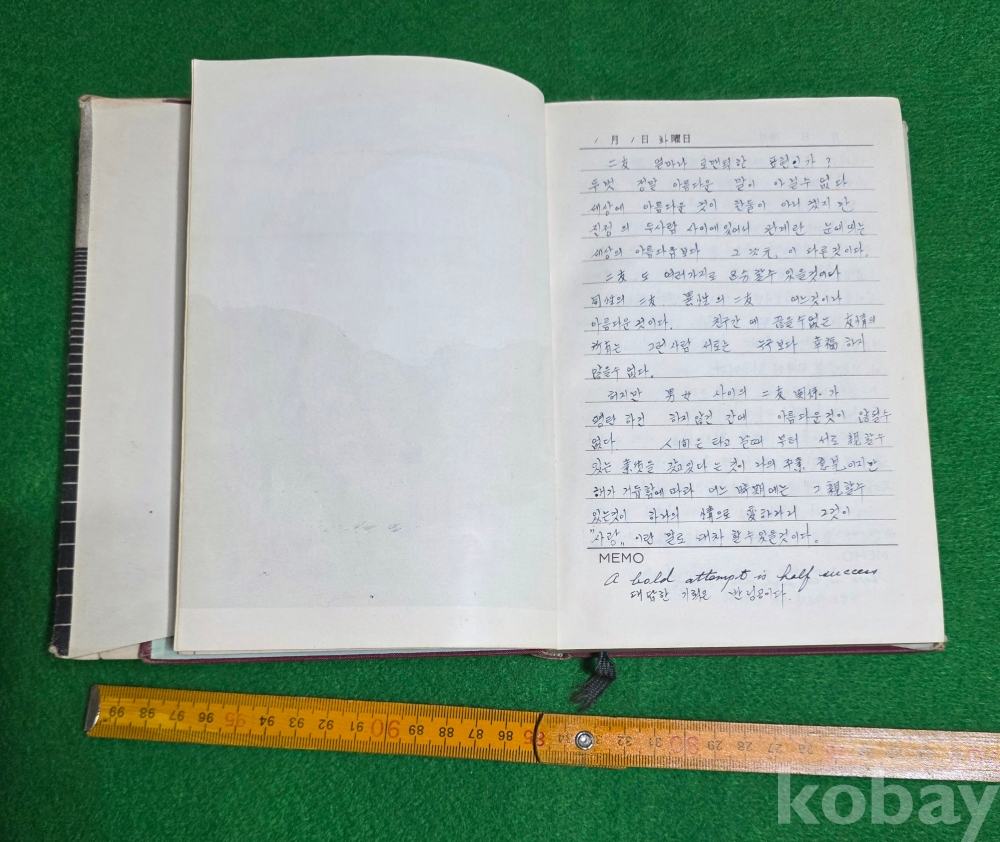 1 月 1 日 화 曜日
二友 얼마나 로맨틱한 표현인가?
두벗 정말 아름다운 말이 아닐수 없다
세상에 아름다운 것이 한둘이 아니겠지만
진정의 두사람 사이에있어서 관계란 눈에띄는
세상의 아름다움보다 그 次元이 다른것이다.
二友도 여러가지로 分할수 있을것이다
同性의 二友 異性의 二友 어느것이나
아름다운것이다. 친구간에 끊을수없는 友情의
所有는 그런사람 서로는 누구보다 幸福하지
않을수 없다.
하지만 男女 사이의 二友 関係가
열탄하건 하지않건 간에 아름다운것이 않될수
없다 人間은 타고 날때 부터 서로 親할수
있는 갖고있다는 것이 나의 이지만
해가 거듭함에따라 어느 時期에는 그 親할수
있는것이 하나의 情으로 愛하자 그것이
"사랑" 이란 말로 대치 할수있을것이다.
MEMO
A bold attempt is half success
대담한 기획은 반성공이다.
99 98 97 96 95 94 93 92 91 90 89 88 87 86 85
32 31 30 29 28 27
kobay